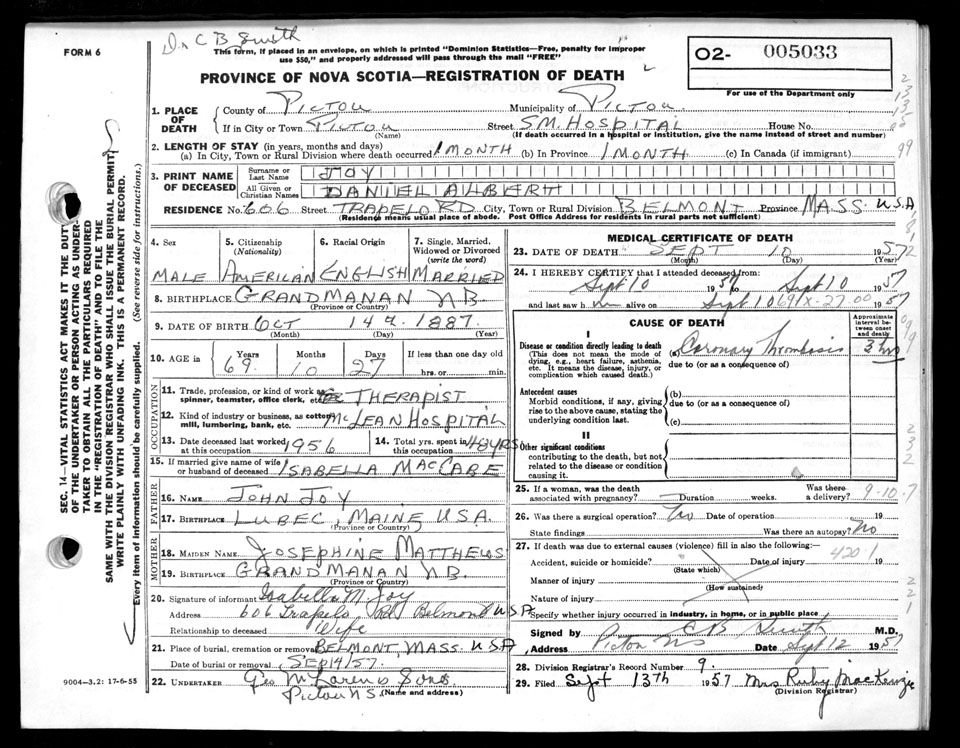 Dr C B Smith
FORM 6
This form, if placed in an envelope, on which is printed "Dominion Statistics—Free, penalty for improper
use $50," and properly addressed will pass through the mail "FREE"
O2- 005033
For use of the Department only
PROVINCE OF NOVA SCOTIA—REGISTRATION OF DEATH
1. PLACE OF DEATH County of Pictou Municipality of Pictou
If in City or Town Pictou Street S.M. HOSPITAL House No.
(Name) (If death occurred in a hospital or institution, give the name instead of street and number)
2. LENGTH OF STAY (in years, months and days)
(a) In City, Town or Rural Division where death occurred 1 MONTH (b) In Province 1 MONTH (c) In Canada (if immigrant)
3. PRINT NAME OF DECEASED Surname or Last Name JOY
All Given or Christian Names DANIEL ALBERT
RESIDENCE No. 606 Street TRAPELO RD City, Town or Rural Division BELMONT Province MASS. U.S.A
(Residence means usual place of abode. Post Office Address for residents in rural parts not sufficient)
4. Sex 5. Citizenship (Nationality) 6. Racial Origin 7. Single, Married, Widowed or Divorced (write the word)
MALE AMERICAN ENGLISH MARRIED
8. BIRTHPLACE GRAND MANAN N B.
(Province or Country)
9. DATE OF BIRTH OCT 14 1887.
(Month) (Day) (Year)
10. AGE in Years Months Days If less than one day old
69. 10 27 hrs. or min.
OCCUPATION
11. Trade, profession, or kind of work as spinner, teamster, office clerk, etc. THERAPIST
12. Kind of industry or business, as cotton mill, lumbering, bank, etc. McLEAN HOSPITAL
13. Date deceased last worked at this occupation 1956 14. Total yrs. spent in this occupation
15. If married give name of wife or husband of deceased ISABELLA MACCABE
FATHER
16. NAME JOHN JOY
17. BIRTHPLACE LUBEC, MAINE USA.
(Province or Country)
MOTHER
18. MAIDEN NAME JOSEPHINE MATTHEWS
19. BIRTHPLACE GRAND MANAN NB.
(Province or Country)
20. Signature of informant Isabella M. Joy
Address 606 Trapelo Rd Belmont USA
Relationship to deceased Wife
21. Place of burial, cremation or removal BELMONT, MASS. USA
Date of burial or removal SEP 14/57.
22. UNDERTAKER Geo McLaren & Sons
Pictou N S. (Name and address)
9004—3.2: 17-6-55
MEDICAL CERTIFICATE OF DEATH
23. DATE OF DEATH SEPT 10 1957
(Month) (Day) (Year)
24. I HEREBY CERTIFY that I attended deceased from:
Sept 10 1957 to Sept 10 1957
and last saw h im alive on Sept 10 1957
CAUSE OF DEATH
Approximate interval between onset and death
I
Disease or condition directly leading to death
(This does not mean the mode of dying, e.g., heart failure, asthenia, etc. It means the disease, injury, or complication which caused death.)
(a) Coronary Thrombosis 3 hrs
due to (or as a consequence of)
Antecedent causes
Morbid conditions, if any, giving rise to the above cause, stating the underlying condition last.
(b)
due to (or as a consequence of)
(c)
II
Other significant conditions
contributing to the death, but not related to the disease or condition causing it.
25. If a woman, was the death associated with pregnancy? Duration weeks. Was there a delivery? 9-10-7
26. Was there a surgical operation? No Date of operation 19
State findings Was there an autopsy? No
27. If death was due to external causes (violence) fill in also the following:—
Accident, suicide or homicide? Date of injury 19
(State which) 420.1
Manner of injury
(How sustained)
Nature of injury
Specify whether injury occurred in industry, in home, or in public place
Signed by C B Smith M.D.
Address Pictou NS Date Sept 12 1957
28. Division Registrar's Record Number 9.
29. Filed Sept 13th 1957 Mrs Ruby MacKenzie
(Division Registrar)
SEC. 14—VITAL STATISTICS ACT MAKES IT THE DUTY
OF THE UNDERTAKER OR PERSON ACTING AS UNDER-
TAKER TO OBTAIN ALL THE PARTICULARS REQUIRED
IN THE "REGISTRATION OF DEATH" AND TO FILE THE
SAME WITH THE DIVISION REGISTRAR WHO SHALL ISSUE THE BURIAL PERMIT.
WRITE PLAINLY WITH UNFADING INK. THIS IS A PERMANENT RECORD.
Every item of information should be carefully supplied. (See reverse side for instructions.)